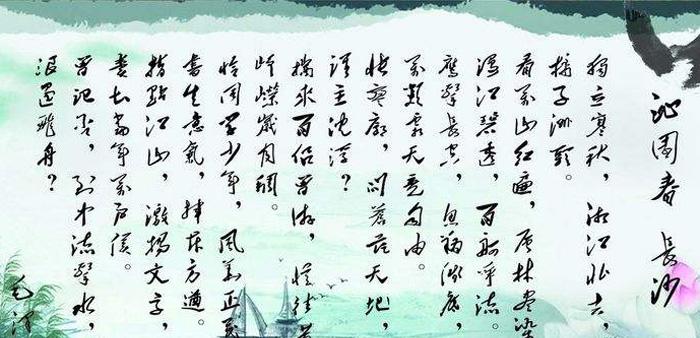 沁园春 长沙
独立寒秋，湘江北去，
橘子洲头。
看万山红遍，层林尽染
漫江碧透，百舸争流。
鹰击长空，鱼翔浅底，
万类霜天竞自由。
怅寥廓，问苍茫天地，
谁主沉浮？
携来百侣曾游，忆往昔
峥嵘岁月稠。
恰同学少年，风华正茂
书生意气，挥斥方遒。
指点江山，激扬文字，
粪土当年万户侯。
曾记否，到中流击水，
浪遏飞舟？
毛泽